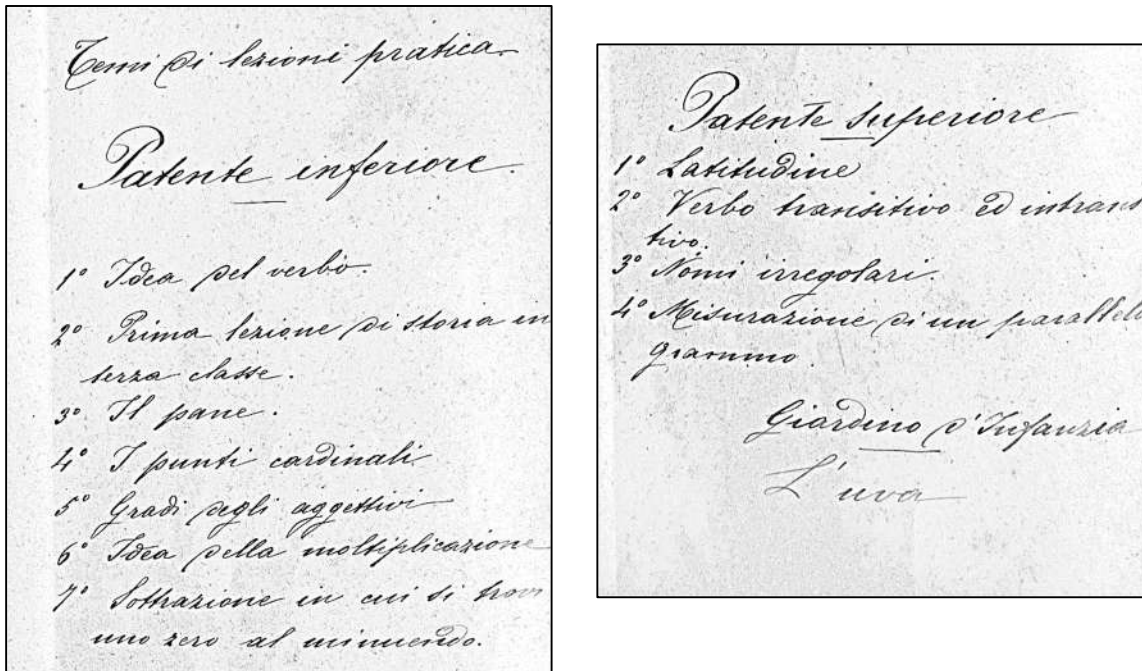 Temi di lezioni pratica
Patente inferiore.
1° Idea del verbo.
2° Prima lezione di storia in
terza classe.
3° Il pane.
4° I punti cardinali
5° Gradi degli aggettivi
6° Idea della moltiplicazione
7° Sottrazione in cui si trovi
uno zero al minuendo.
Patente superiore
1° Latitudine
2° Verbo transitivo ed intransi
tivo.
3° Nomi irregolari.
4° Misurazione di un parallelo
grammo
Giardino d'Infanzia
L'uva